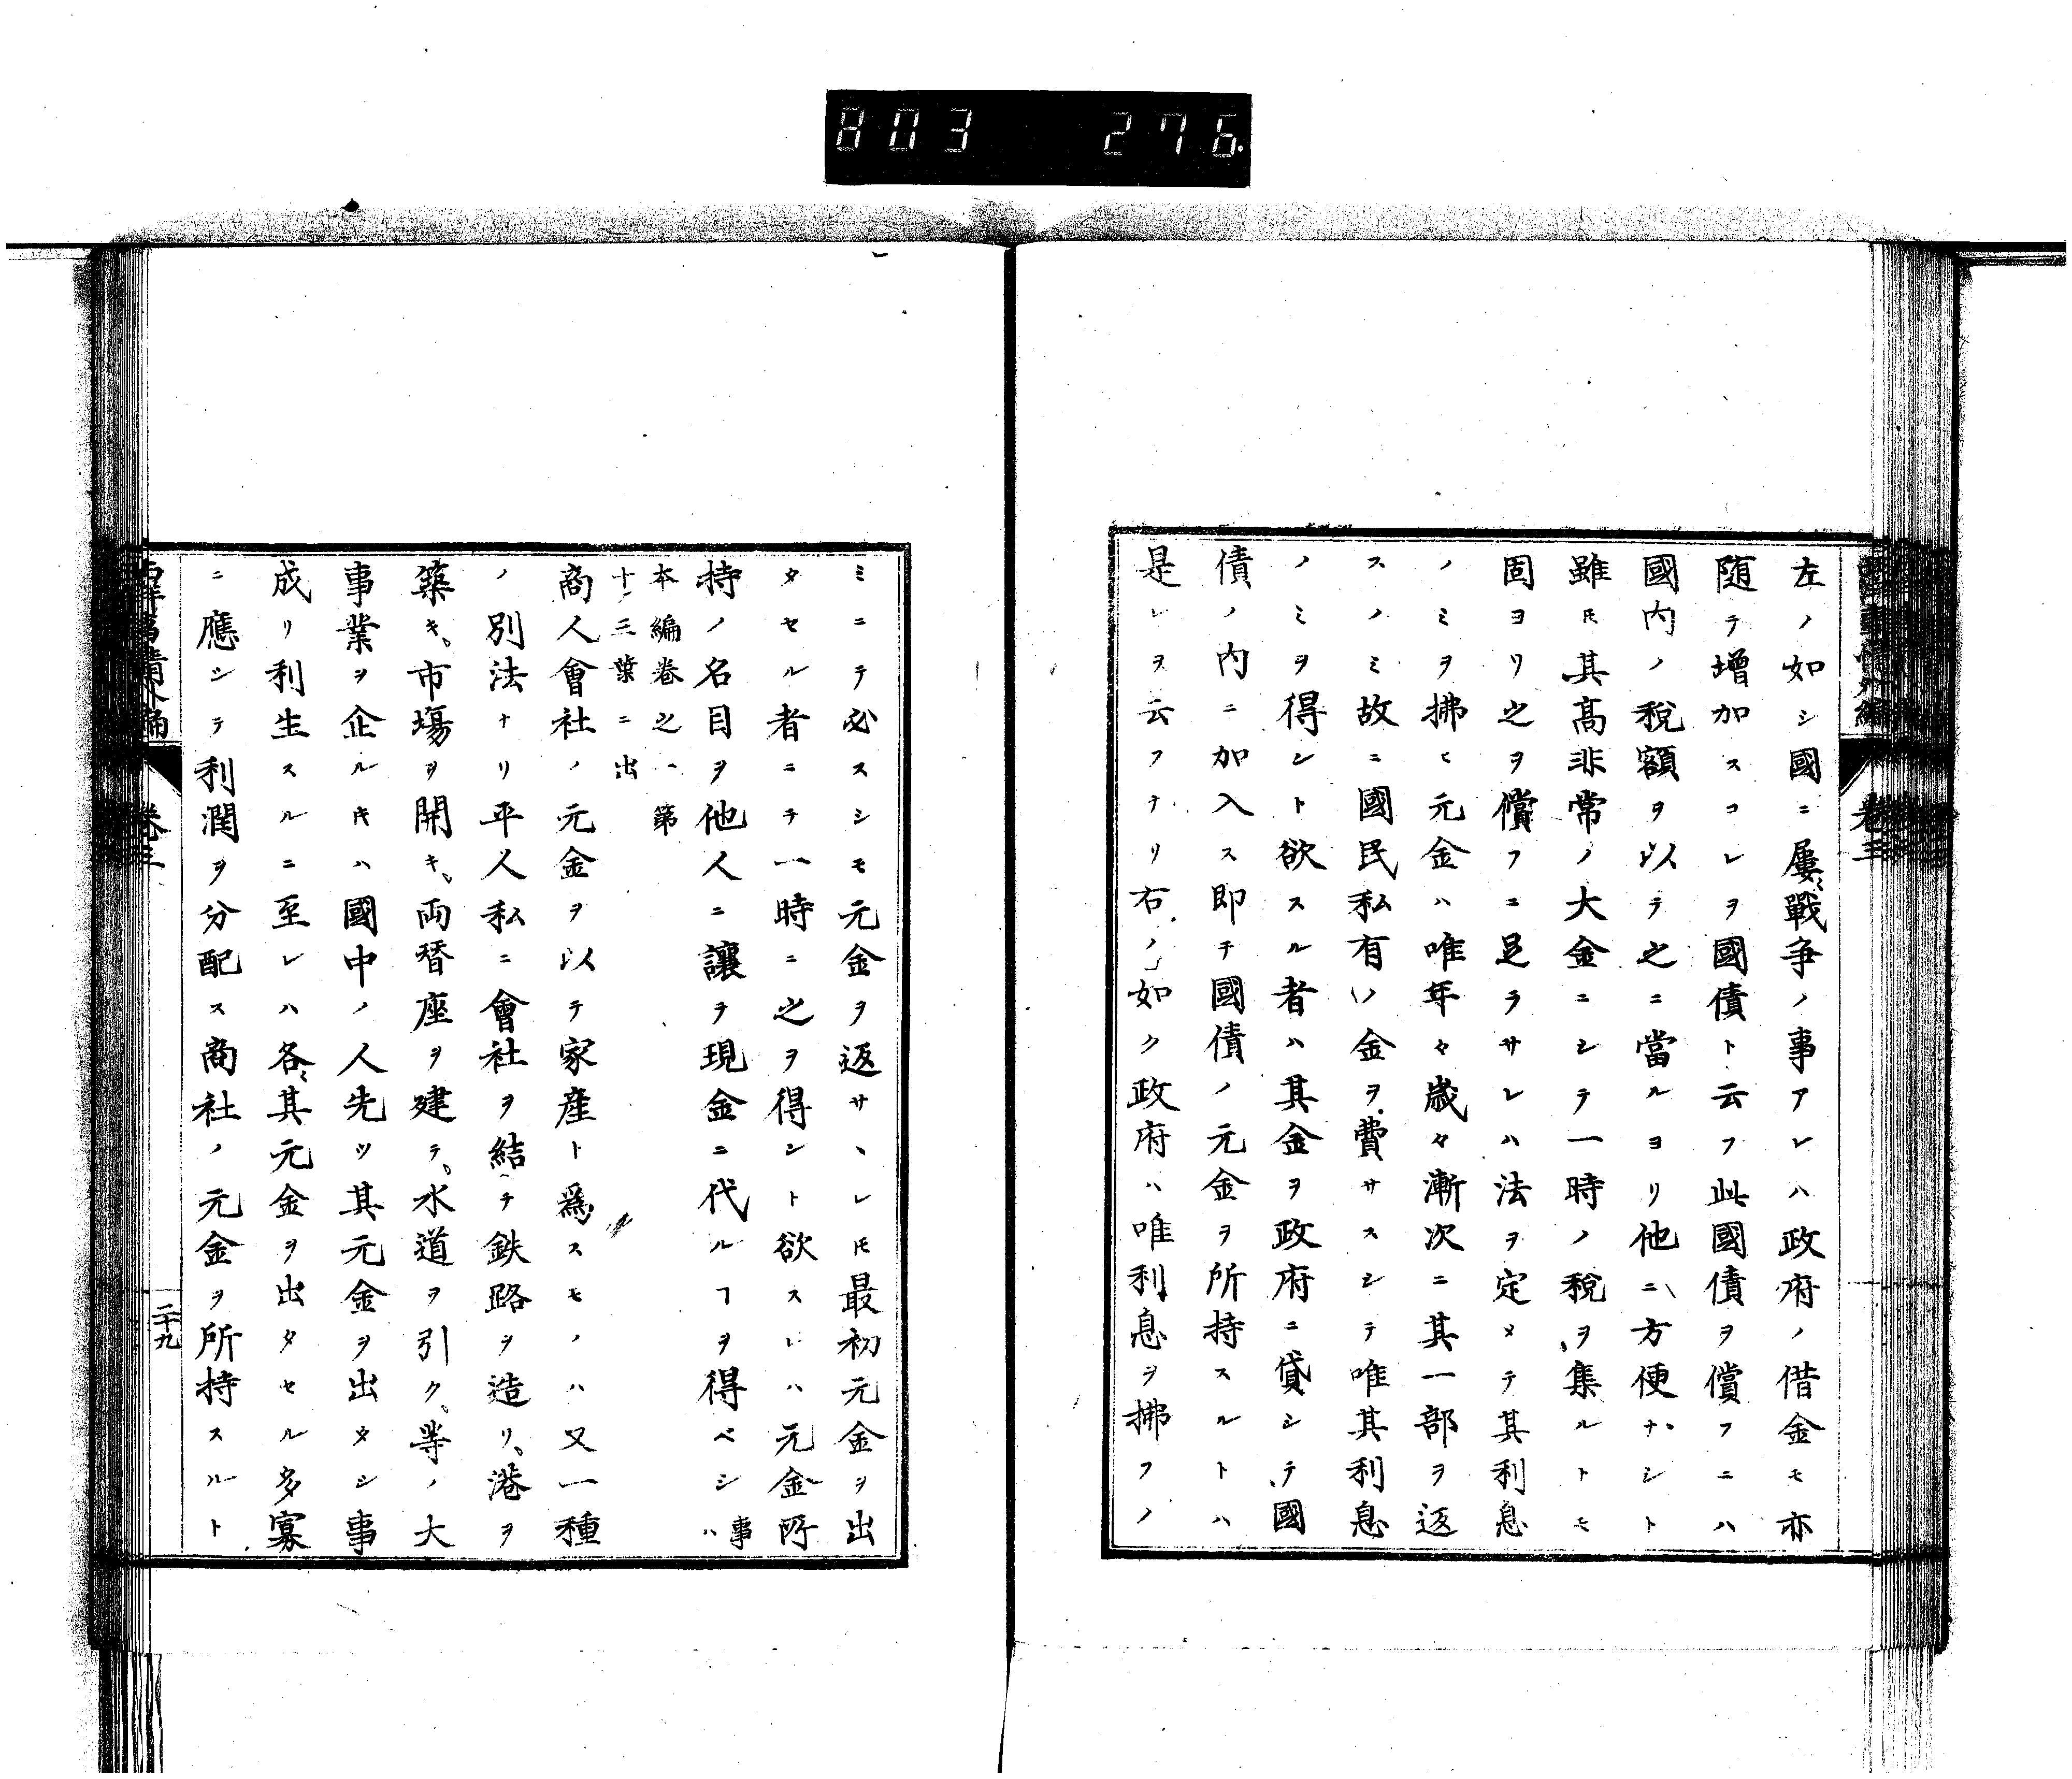 803 276
左ノ如シ國ニ屢〻戰争ノ事アレハ政府ノ借金モ亦
随テ増加スコレヲ國債ト云フ此國債ヲ償フニハ
國内ノ税額ヲ以テ之ニ當ルヨリ他ニ方便ナシト
雖𪜈其高非常ノ大金ニシテ一時ノ税ヲ集ルトモ
固ヨリ之ヲ償フニ足ラサレハ法ヲ定メテ其利息
ノミヲ拂ヒ元金ハ唯年々歳々漸次ニ其一部ヲ返
スノミ故ニ國民私有ノ金ヲ費サスシテ唯其利息
ノミヲ得ント欲スル者ハ其金ヲ政府ニ貸シテ國
債ノ内ニ加入ス即チ國債ノ元金ヲ所持スルトハ
是レヲ云フナリ右ノ如ク政府ハ唯利息ヲ拂フノ
西洋事情外編 卷三
ミニテ必スシモ元金ヲ返サヽレ𪜈最初元金ヲ出
タセル者ニテ一時ニ之ヲ得ント欲スレハ元金所
持ノ名目ヲ他人ニ讓テ現金ニ代ルヿヲ得ベシ事ハ
本編卷之一第
十三葉ニ出
商人會社ノ元金ヲ以テ家産ト爲スモノハ又一種
ノ別法ナリ平人私ニ會社ヲ結テ鉄路ヲ造リ港ヲ
築キ市塲ヲ開キ両替座ヲ建テ水道ヲ引ク等ノ大
事業ヲ企ルキハ國中ノ人先ツ其元金ヲ出タシ事
成リ利生スルニ至レハ各〻其元金ヲ出タセル多寡
ニ應シテ利潤ヲ分配ス商社ノ元金ヲ所持スルト
西洋事情外編 卷三 二十九